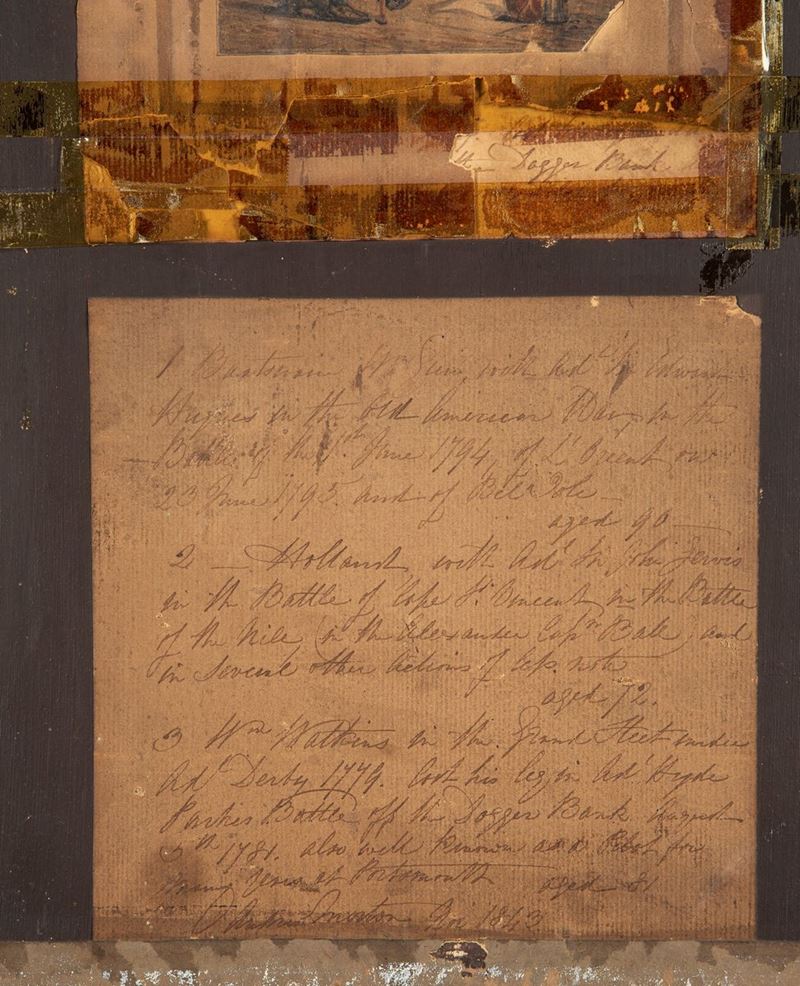 the Dogger Bank
1 Boatswain Wm with Adl Sir Edward
Hughes in the Old American War, in the
Battle of the 1st June 1794, of L'Orient on
23 June 1795. and of Belle Isle
aged 90
2 — Holland, with Adl Sir John Jervis
in the Battle of Cape St Vincent, in the Battle
of the Nile (in the Alexander Captn Ball) and
in several other Actions of less note
aged 72.
3 Wm Watkins in the Grand Fleet under
Adl Derby 1779. lost his leg in Adl Hyde
Parkes Battle off the Dogger Bank August
5th 1781. also well known as a Pilot for
many Years at Portsmouth aged 81
1843